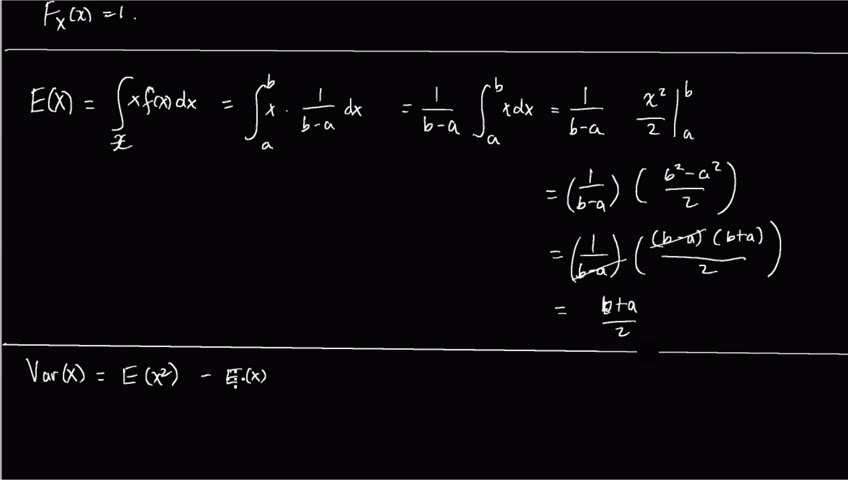 F_X(x) = 1.
E(X) = ∫_𝒳 x f(x) dx = ∫_a^b x · 1/(b-a) dx = 1/(b-a) ∫_a^b x dx = 1/(b-a) x²/2 |_a^b
= (1/(b-a)) ((b²-a²)/2)
= (1/(b-a)) ((b-a)(b+a)/2)
= (b+a)/2
Var(X) = E(x²) - E.(x)